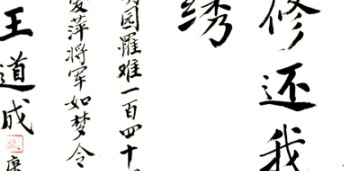 修还我
绣
园罹难一百四十
爱萍将军如梦令
王道成